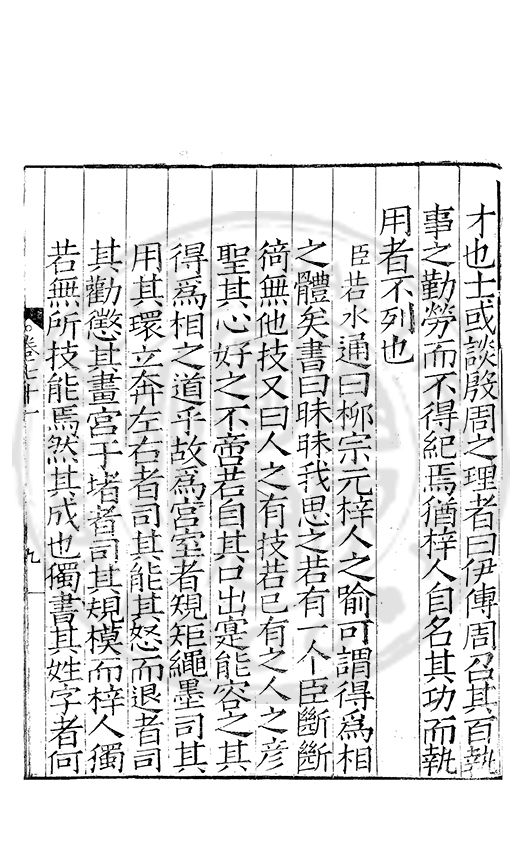 才也士或談殷周之理者曰伊傅周召其百執
事之勤勞而不得紀焉猶梓人自名其功而執
用者不列也
臣若水通曰柳宗元梓人之喻可謂得為相
之體矣書曰昧昧我思之若有一个臣斷斷
猗無他技又曰人之有技若已有之人之彥
聖其心好之不啻若自其口出寔能容之其
得為相之道乎故為宮室者䂓矩繩墨司其
用其環立奔左右者司其能其怒而退者司
其勸懲其畫宮于堵者司其䂓模而梓人獨
若無所技能焉然其成也獨書其姓字者何
九